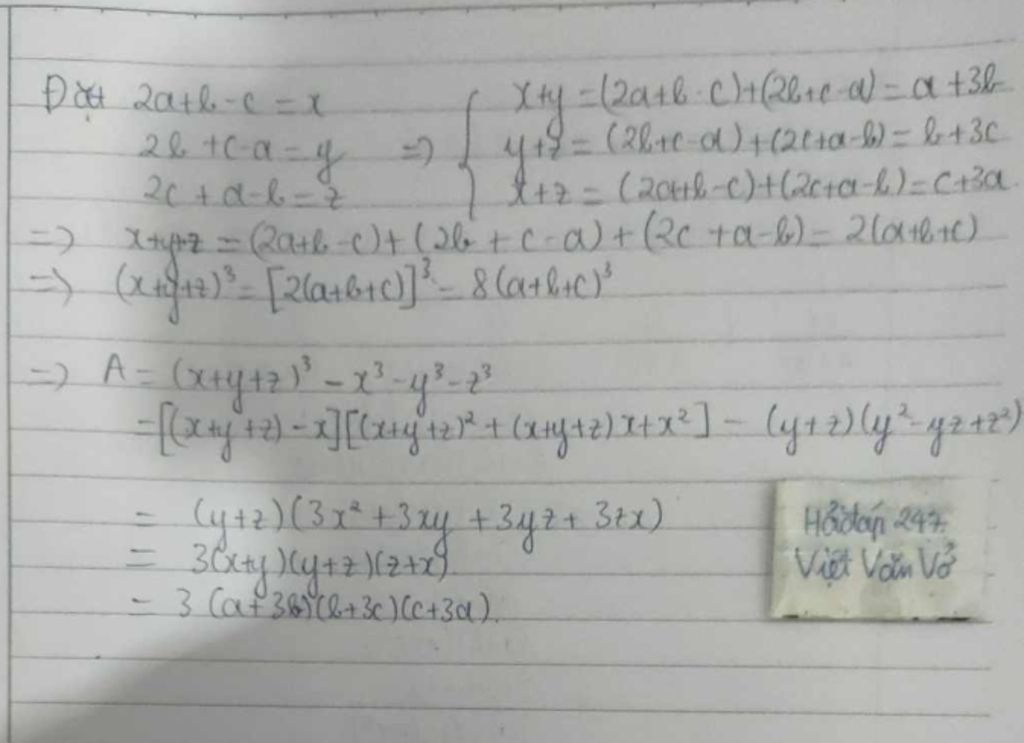 Đặt 2a+b-c = x
2b+c-a = y
2c+a-b = z
=> { x+y = (2a+b-c)+(2b+c-a) = a+3b
y+z = (2b+c-a)+(2c+a-b) = b+3c
x+z = (2a+b-c)+(2c+a-b) = c+3a
=> x+y+z = (2a+b-c)+(2b+c-a)+(2c+a-b) = 2(a+b+c)
=> (x+y+z)³ = [2(a+b+c)]³ = 8(a+b+c)³
=> A = (x+y+z)³ - x³ - y³ - z³
= [(x+y+z)-x][(x+y+z)²+(x+y+z)x+x²] - (y+z)(y²-yz+z²)
= (y+z)(3x²+3xy+3yz+3zx)
= 3(x+y)(y+z)(z+x)
= 3(a+3b)(b+3c)(c+3a).
Hỏi đáp 247.
Việt Văn Vở